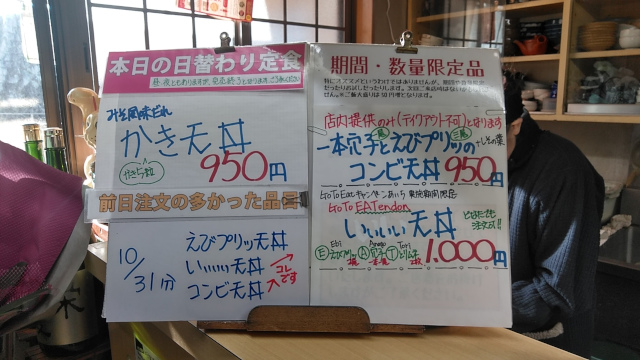 本日の日替わり定食
みそ風味だれ
かき天丼
かき5粒
950円
前日注文の多かった品
10/31分
えびプリッ天丼
いいいいッ天丼
コンビ天丼
コレです
期間・数量限定品
店内提供のみ(テイクアウト不可)となります
一本穴子とえびプリッの
コンビ天丼 950円
GoToEatキャンペーンあいち 実施期間限定
GoTo EATendon
いいいい天丼
1,000円
Ebi Anago Tori